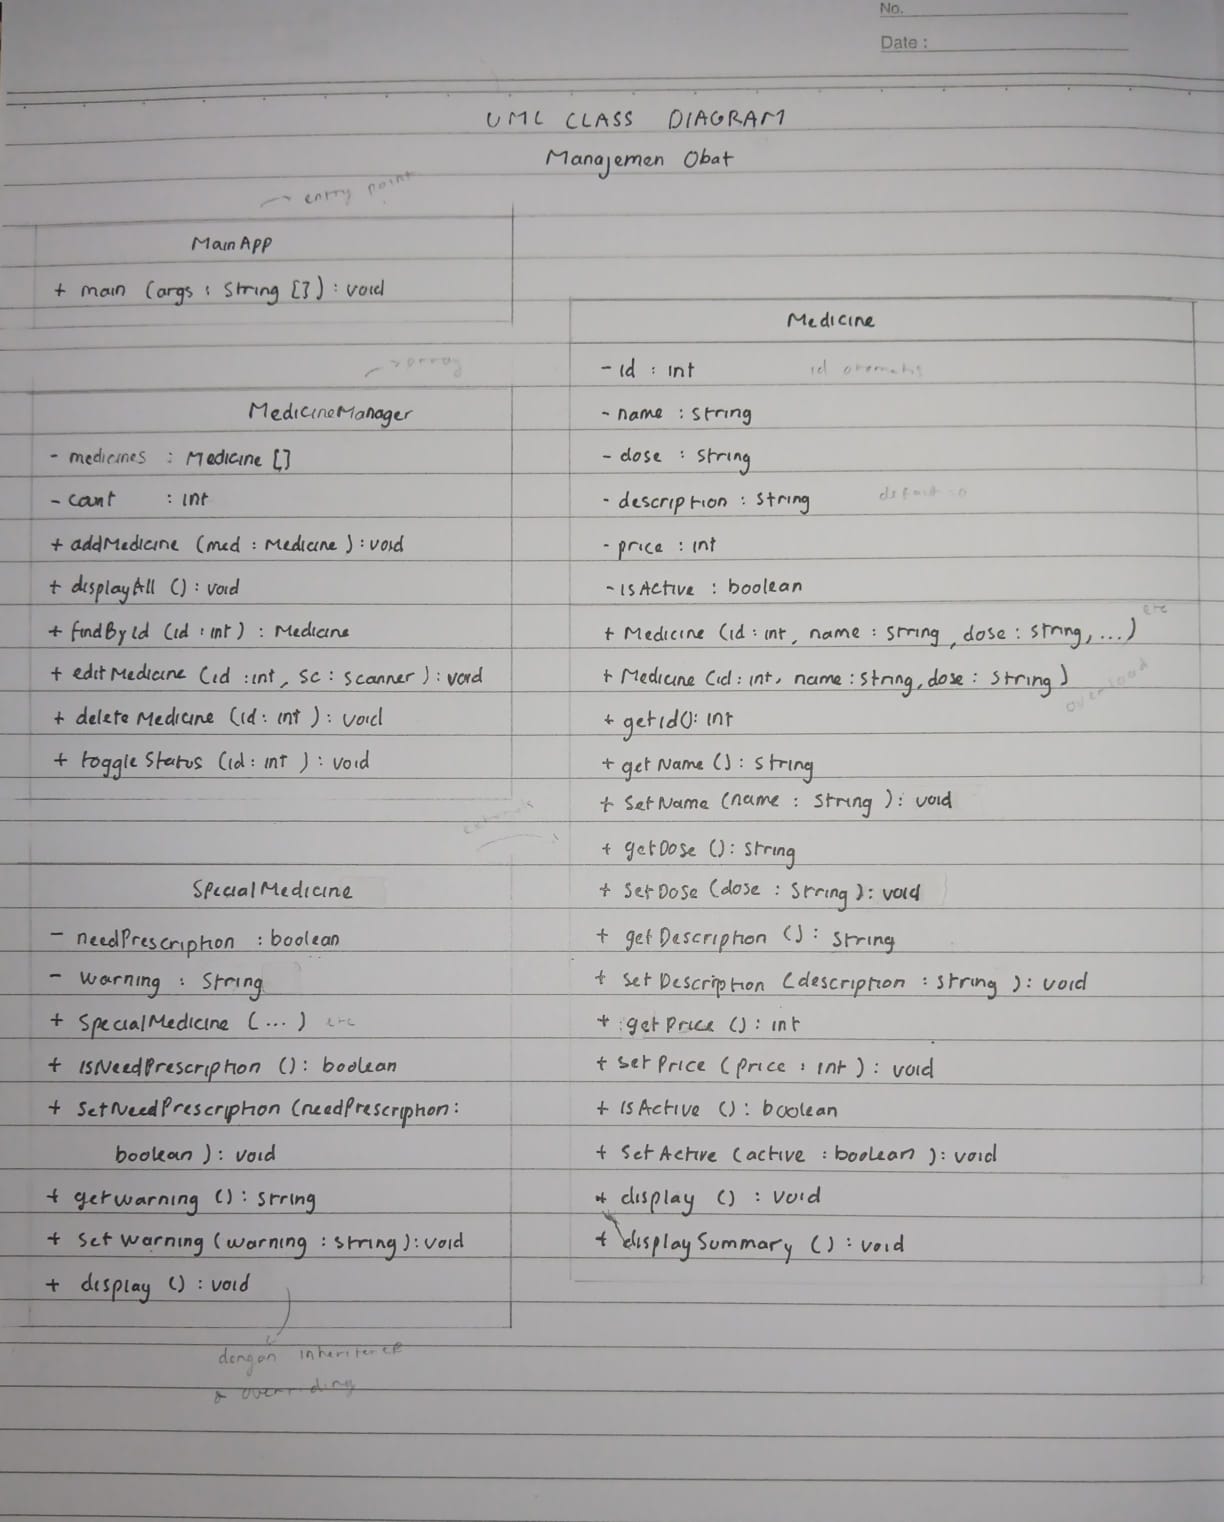 No.
Date :
UML CLASS DIAGRAM
Manajemen Obat
entry point
MainApp
+ main (args : String []) : void
array
MedicineManager
- medicines : Medicine []
- count : int
+ addMedicine (med : Medicine ) : void
+ displayAll () : void
+ findById (id : int) : Medicine
+ editMedicine (id : int, sc : scanner ) : void
+ deleteMedicine (id : int ) : void
+ toggleStatus (id : int ) : void
extends
SpecialMedicine
- needPrescription : boolean
- warning : String
+ SpecialMedicine (...) etc
+ isNeedPrescription () : boolean
+ SetNeedPrescription (needPrescription :
boolean ) : void
+ getwarning () : string
+ Set warning (warning : string) : void
+ display () : void
dengan inheritence
& overriding
Medicine
- id : int
- name : string
- dose : string
- description : string
- price : int
- isActive : boolean
etc
+ Medicine (id : int, name : string, dose : string, ...)
+ Medicine (id : int, name : string, dose : string)
overload
+ getId() : int
+ getName () : string
+ SetName (name : string ) : void
+ getDose () : string
+ SetDose (dose : string ) : void
+ getDescription () : string
+ SetDescription (description : string ) : void
+ getPrice () : int
+ SetPrice (price : int ) : void
+ isActive () : boolean
+ SetActive (active : boolean ) : void
+ display () : void
+ displaySummary () : void